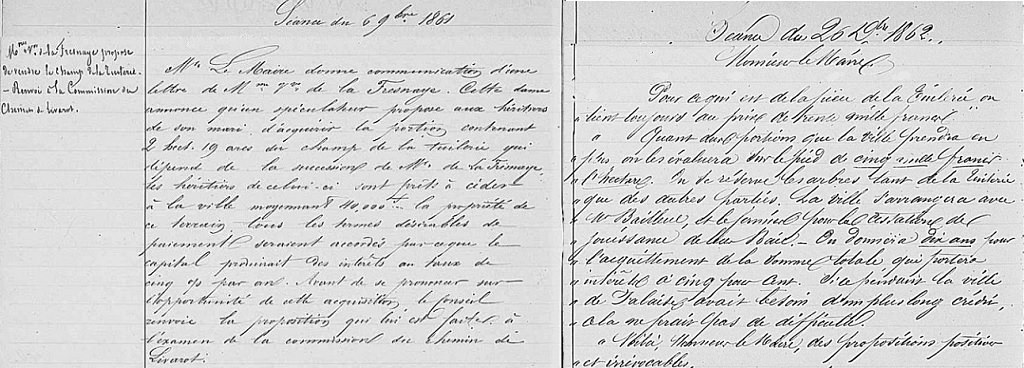 Séance du 6 9bre 1861
Mme Vve de la Fresnaye propose
de vendre le champ de la Tuilerie.
- Renvoi à la Commission du
Chemin de Livarot.
Mr Le Maire donne communication d'une
lettre de Mme Vve de la Fresnaye. Cette dame
annonce qu'un spéculateur propose aux héritiers
de son mari, d'acquérir la portion contenant
2 hect. 19 ares du champ de la tuilerie qui
dépend de la succession de Mr de La Fresnaye,
les héritiers de celui-ci sont prêts à céder
à la ville moyennant 40,000 f la propriété de
ce terrain, tous les termes désirables de
paiement seraient accordés parceque le
capital produirait des intérêts au taux de
cinq % par an. Avant de se prononcer sur
l'opportunité de cette acquisition, le conseil
renvoie la proposition qui lui est faite, à
l'examen de la commission du chemin de
Livarot.
Séance du 26 Xbre 1862.
Monsieur le Maire,
Pour ce qui est de la pièce de la Tuilerie on
" tient toujours au prix de trente mille francs.
" Quant aux portions que la ville prendra en
" plus on les évaluera sur le pied de cinq mille francs
" l'hectare. On se réserve les arbres tant de la Tuilerie
" que des autres parties. La ville s'arrangera avec
" Mr Bailleul et le fermier pour la cessation de
" jouissance de leur Bail. - On donnera dix ans pour
" l'acquittement de la somme totale qui portera
" intérêt à cinq pour cent. Si cependant la ville
" de Falaise avait besoin d'un plus long crédit,
" cela ne ferait pas de difficulté.
" Voilà, Monsieur le Maire, des propositions positives
" et irrévocables.